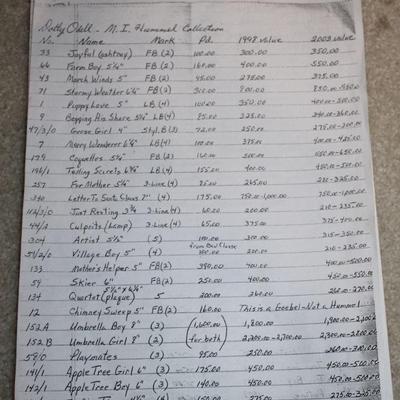 Dotty Odell - M. I. Hummel Collection
No. Name Mark Pd. 1998 value 2003 value
33 Joyful (ashtray) FB (2) 100.00 300.00 350.00
66 Farm Boy 5¼" FB (2) 160.00 400.00 550.00
43 March Winds 5" FB (2) 45.00 275.00 375.00
71 Stormy Weather 6¼" FB (2) 310.00 800.00
1 Puppy Love 5" LB (4) 100.00 350.00
9 Begging His Share 5½" LB (4) 95.00 325.00
47/3/0 Goose Girl 4" Styl.B(3) 72.00 250.00 275.00-
7 Merry Wanderer LB(4) 100.00 375.00 400.00-425.00
179 Coquettes 5¼" FB(2) 160.00 500.00 550.00-650.00
196/1 Telling Secrets LB(4) 155.00 400.00 450.00-500.00
257 For Mother 5¼" 3-Line(4) 265.00
340 Letter To Santa Claus 7" (4) 175.00 750-1,000.00 750.00-1,000.00
112/3/0 Just Resting 3¾ 3-Line(4) 60.00 200.00 210-235.00
44/A Culprits (Lamp) 3-Line(4) 65.00 375.00 375-400.00
304 Artist 5½" (5) 100.00 300.00 315-350.00
51/2/0 Village Boy 5" (4) 200.00 210-235.00
133 Mother's Helper 5" FB(2) 390.00 400.00 450.00-500.00
59 Skier 6" FB(2) 250.00 400.00 450.00-550.00
134 Quartet (plaque) 5 200.00 260.00
12 Chimney Sweep 5" FB(2) 160.00 This is a Goebel-Not a Hummel
152 A Umbrella Boy 8" (3) (1,600.00 1,800.00
152 B Umbrella Girl 8" (2) for both)
58/0 Playmates (3) 95.00 250.00 260.00-300.00
141/1 Apple Tree Girl 6" (3) 175.00 450.00 450.00-500.00
142/1 Apple Tree Boy 6" (3) 140.00 450.00 450.00-500.00